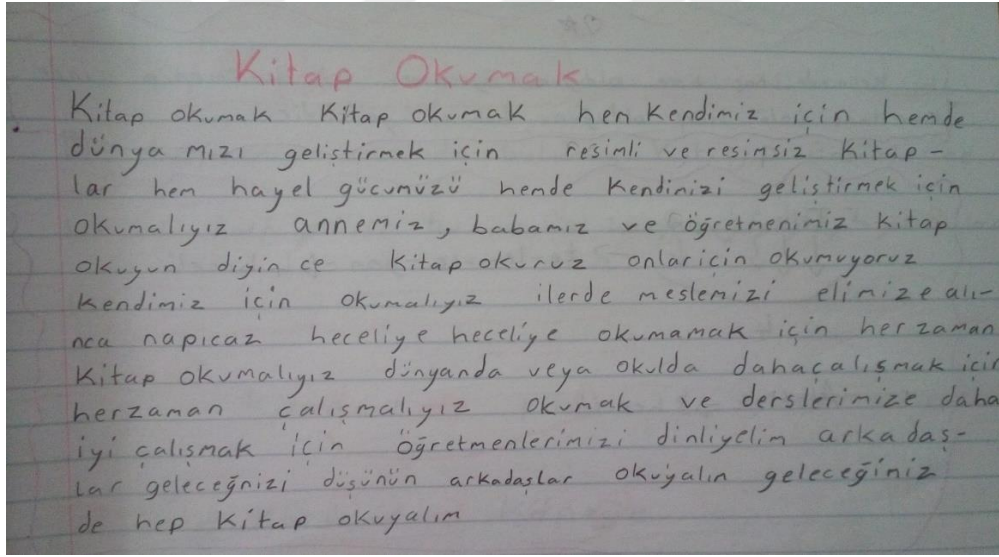 Kitap Okumak
Kitap okumak Kitap okumak hen kendimiz için hemde
dünya mızı geliştirmek için resimli ve resimsiz kitap-
lar hem hayel gücümüzü hemde kendinizi geliştirmek için
okumalıyız annemiz, babamız ve öğretmenimiz kitap
okuyun diyin ce kitap okuruz onlariçin okumuyoruz
kendimiz için okumalıyız ilerde meslemizi elimize alı-
nca napıcaz heceliye heceliye okumamak için her zaman
kitap okumalıyız dünyanda veya okulda dahaçalışmak için
herzaman çalışmalıyız okumak ve derslerimize daha
iyi çalışmak için öğretmenlerimizi dinliyelim arkadaş-
lar geleceğnizi düşünün arkadaşlar okuyalın geleceğiniz
de hep kitap okuyalım